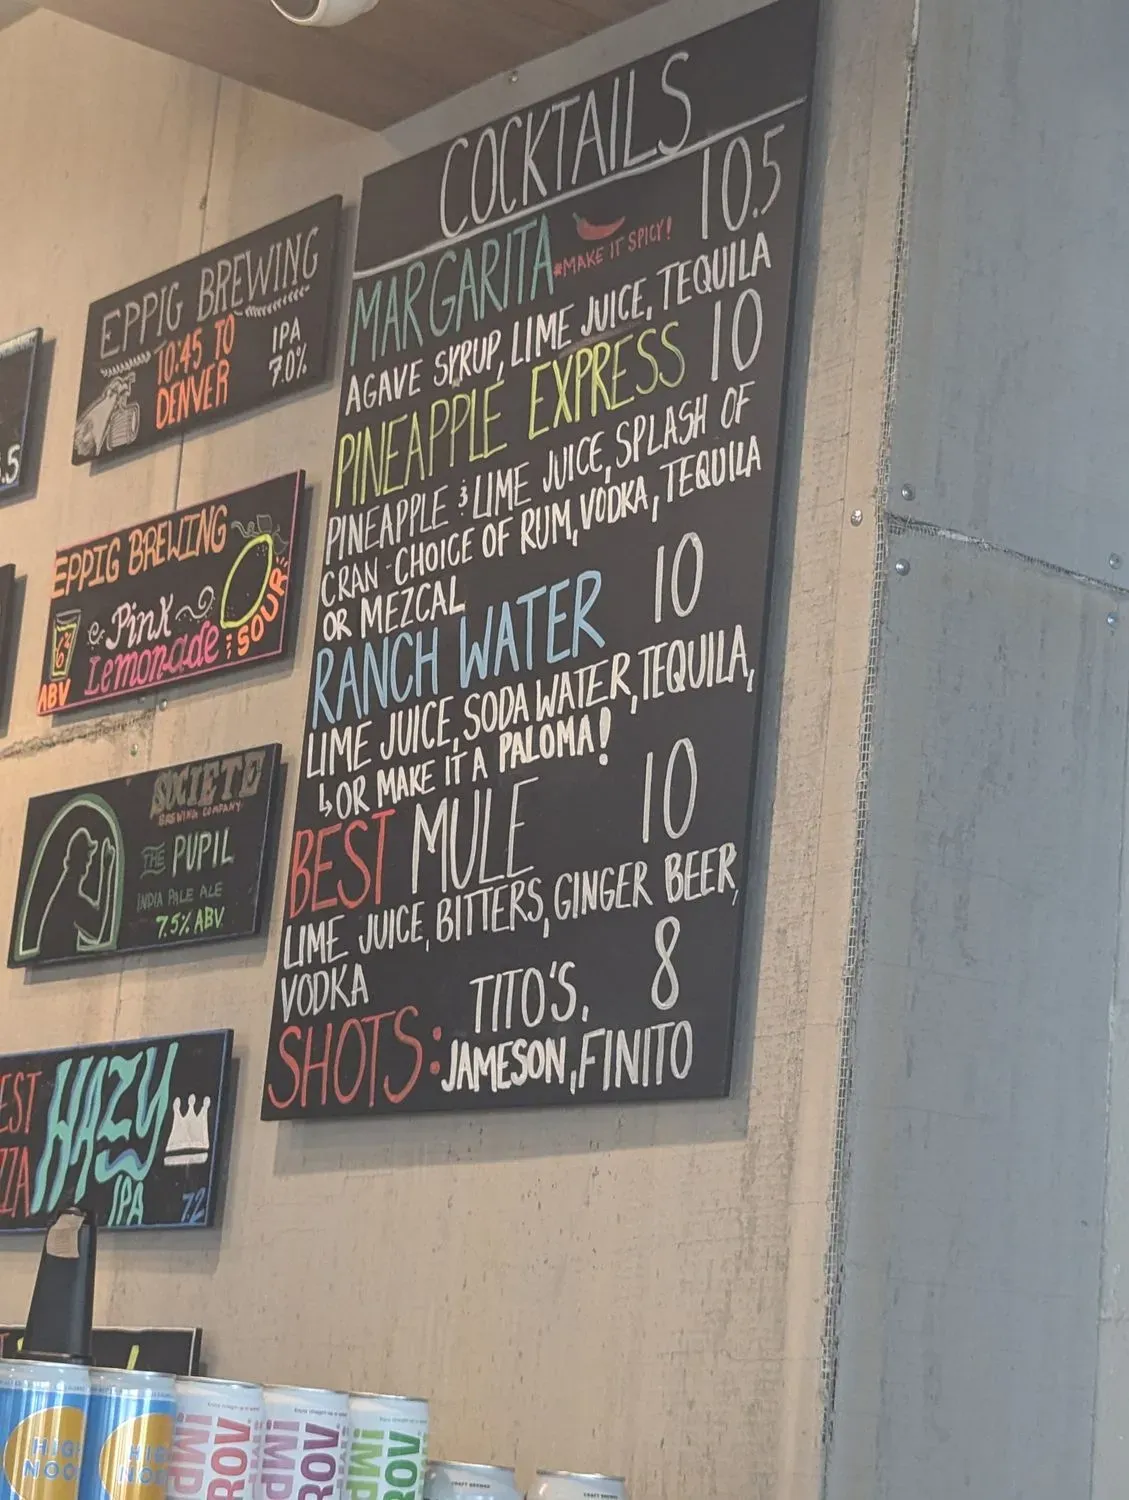 COCKTAILS
MARGARITA #MAKE IT SPICY! 10.5
AGAVE SYRUP, LIME JUICE, TEQUILA
PINEAPPLE EXPRESS 10
PINEAPPLE & LIME JUICE, SPLASH OF
CRAN - CHOICE OF RUM, VODKA, TEQUILA
OR MEZCAL
RANCH WATER 10
LIME JUICE, SODA WATER, TEQUILA,
↳ OR MAKE IT A PALOMA!
BEST MULE 10
LIME JUICE, BITTERS, GINGER BEER,
VODKA
SHOTS: TITO'S, 8
JAMESON, FINITO
EPPIG BREWING
10:45 TO
DENVER
IPA
7.0%
EPPIG BREWING
Pink
Lemonade
: SOUR:
6%
ABV
SOCIETE
BREWING COMPANY
THE PUPIL
INDIA PALE ALE
7.5% ABV
HAZY
IPA
7.2
.5
HIGH
NOO
HIG
NOO
IMP
ROV
IMP
ROV
IMP
ROV
CRAFT BREWED
CRAFT BREWED